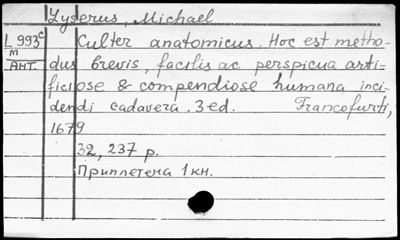 Lyserus, Michael
L 993c Culter anatomicus. Hoc est metho-
m
АНТ. dus brevis, facilis ac perspicua arti-
ficiose & compendiose humana inci-
dendi cadavera. 3 ed. Francofurti,
1679
32, 237 p.
Приплетена 1 кн.